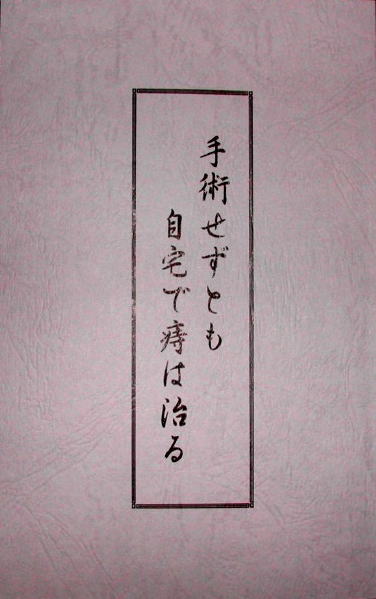 手術せずとも
自宅で痔は治る